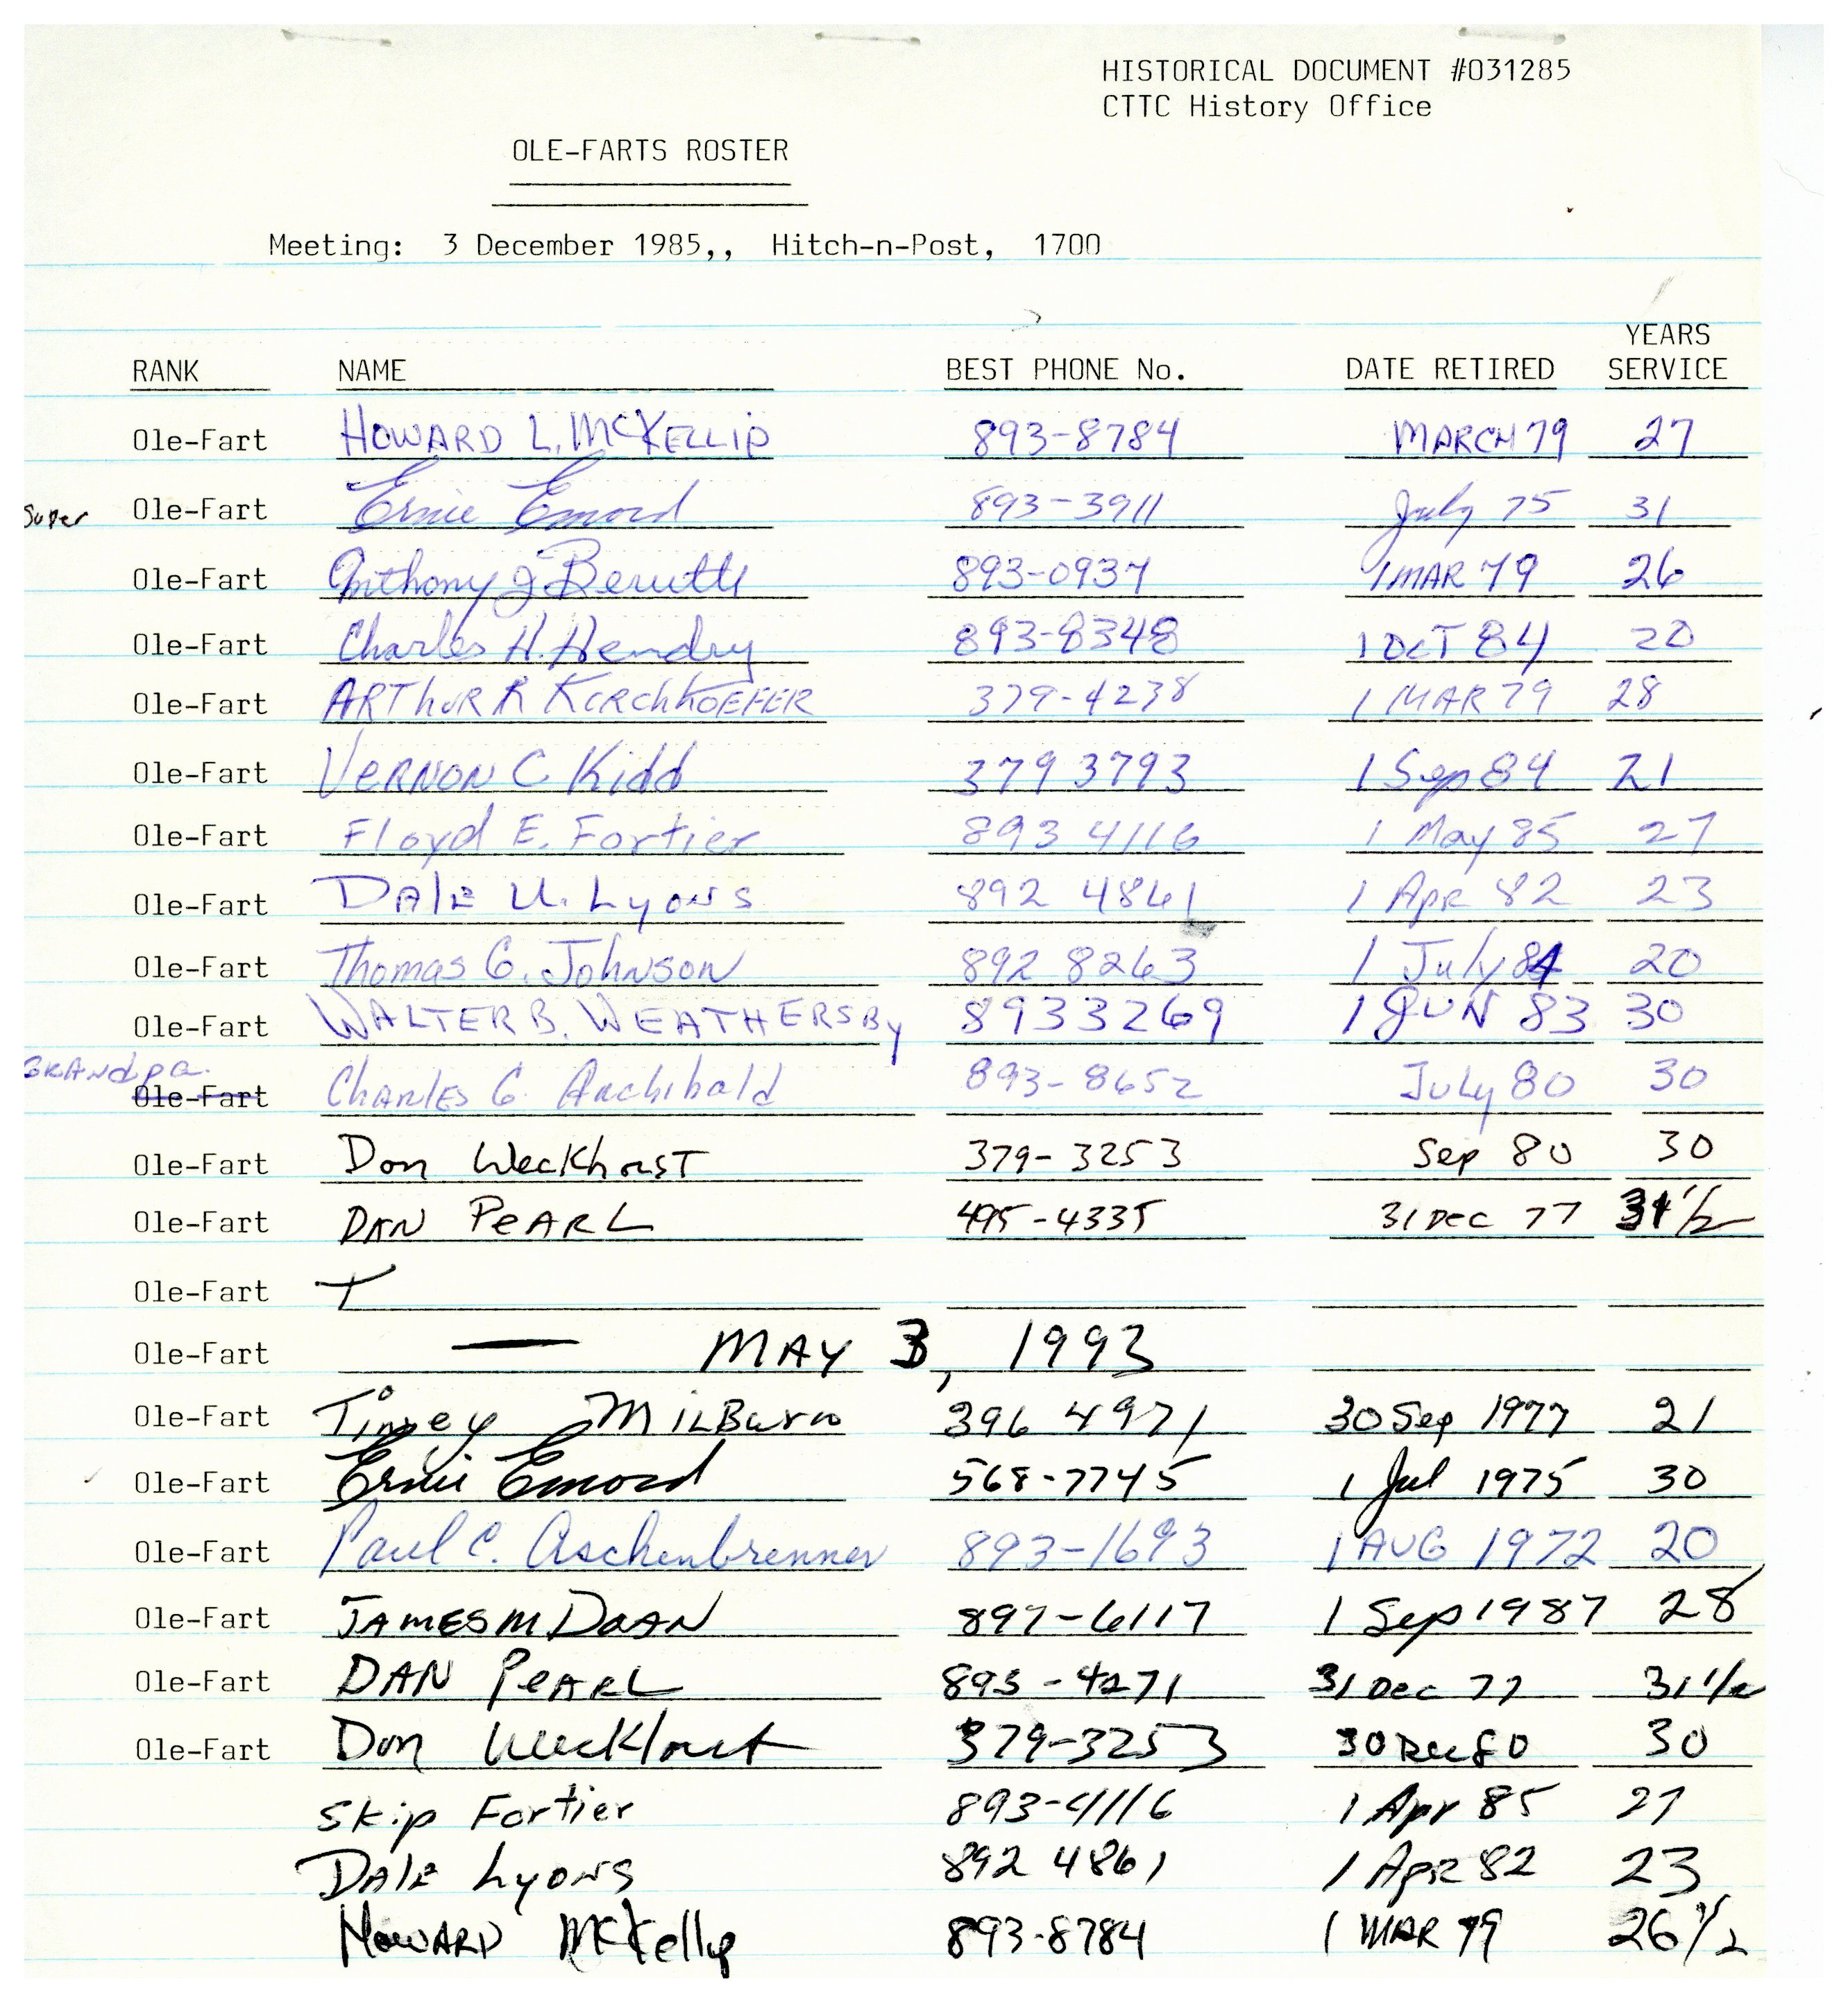 HISTORICAL DOCUMENT #031285
CTTC History Office
OLE-FARTS ROSTER
Meeting: 3 December 1985,, Hitch-n-Post, 1700
YEARS
RANK NAME BEST PHONE No. DATE RETIRED SERVICE
Ole-Fart HOWARD L. MCKELLIP 893-8784 MARCH 79 27
Super Ole-Fart Ernie Emord 893-3911 July 75 31
Ole-Fart Anthony J Beruth 893-0937 1 MAR 79 26
Ole-Fart Charles H. Hendry 893-8348 1 OCT 84 20
Ole-Fart ARThuR R KIRChhOEFER 379-4238 1 MAR 79 28
Ole-Fart VERNON C Kidd 379 3793 1 Sep 84 21
Ole-Fart Floyd E. Fortier 893 4116 1 May 85 27
Ole-Fart DALE U. Lyons 892 4861 1 Apr 82 23
Ole-Fart Thomas G. Johnson 892 8263 1 July 84 20
Ole-Fart WALTER B. WEATHERSBy 893 3269 1 JUN 83 30
GRANdpa.
Ole-Fart CHARLES G. Archibald 893-8652 July 80 30
Ole-Fart Don WeckhorsT 379-3253 Sep 80 30
Ole-Fart DAN PeARL 495-4335 31 Dec 77 31 1/2
Ole-Fart T
Ole-Fart — MAY 3, 1993
Ole-Fart Tinsey MILBurn 396 4971 30 Sep 1977 21
Ole-Fart Ernie Emord 568-7745 1 Jul 1975 30
Ole-Fart Paul C. Aschenbrenner 893-1693 1 AUG 1972 20
Ole-Fart JAMES M DOAN 897-6117 1 Sep 1987 28
Ole-Fart DAN PeARL 893-4271 31 Dec 77 31 1/2
Ole-Fart Don Weckhorst 379-3253 30 Dec 80 30
Skip Fortier 893-4116 1 Apr 85 27
DALE Lyons 892 4861 1 Apr 82 23
HOWARD McKellip 893-8784 1 MAR 79 26 1/2